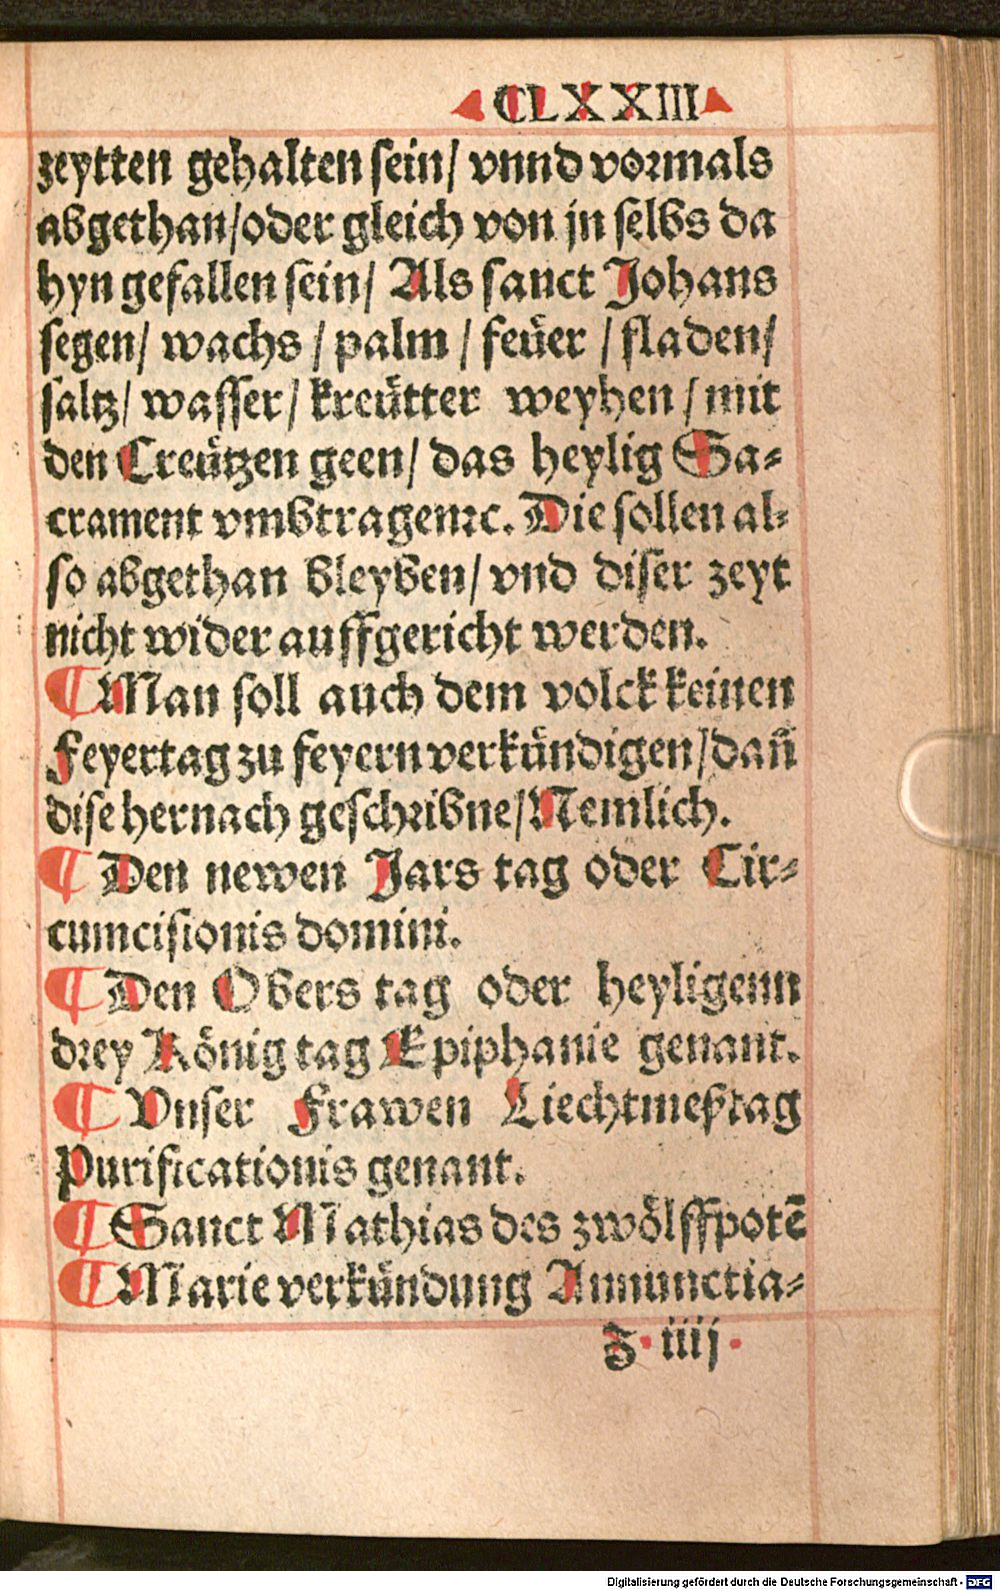 CLXXIII
zeytten gehalten sein/ vnnd vormals
abgethan/oder gleich von jn selbs da
hyn gefallen sein/ Als sanct Johans
segen/ wachs / palm / feüer / fladen/
saltz/ wasser/ kreütter weyhen / mit
den Creützen geen/ das heylig Sa-
crament vmbtragenꝛc. Die sollen al-
so abgethan bleyben/ vnd diser zeyt
nicht wider auffgericht werden.
¶ Man soll auch dem volck keinen
Feyertag zu feyern verkündigen/dañ
dise hernach geschribne/Nemlich.
¶ Den newen Jars tag oder Cir-
cumcisionis domini.
¶ Den Obers tag oder heyligenn
drey König tag Epiphanie genant.
¶ Vnser Frawen Liechtmeßtag
Purificationis genant.
¶ Sanct Mathias des zwölffpotē
¶ Marie verkündung Annunctia-
Z·iiij·
Digitalisierung gefördert durch die Deutsche Forschungsgemeinschaft - DFG